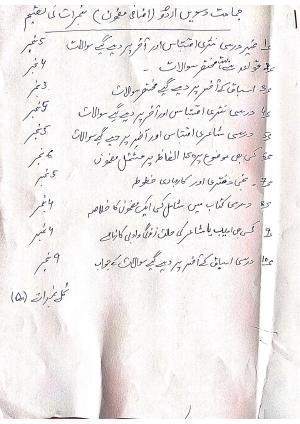 جماعت دسویں اردو (اضافی مضمون) نمبرات کی تقسیم
۱۔ غیر درسی نثری اقتباس اور آخر پر دیے گیے سوالات 5 نمبر
۲۔ قواعد مختصر سوالات ۔ 4 نمبر
۳۔ اسباق کے آخر پر دیے گیے مختصر سوالات 3 نمبر
۴۔ درسی نثری اقتباس اور آخر پر دیے گیے سوالات 5 نمبر
۵۔ درسی شاعری اقتباس اور آخر پر دیے گیے سوالات 5 نمبر
۶۔ کسی بھی موضوع پر ۱۵۰ الفاظ پر مشتمل مضمون 6 نمبر
۷۔ نجی دفتری اور کاروباری خطوط 5 نمبر
۸۔ درسی کتاب میں شامل کسی ایک مضمون کا خلاصہ 4 نمبر
۹۔ کسی ادیب یا شاعر کی حالات زندگی و ادبی کارنامے 4 نمبر
۱۰۔ درسی اسباق کے آخر پر دیے گیے سوالات کے جواب 9 نمبر
کل نمبرات (۵۰)